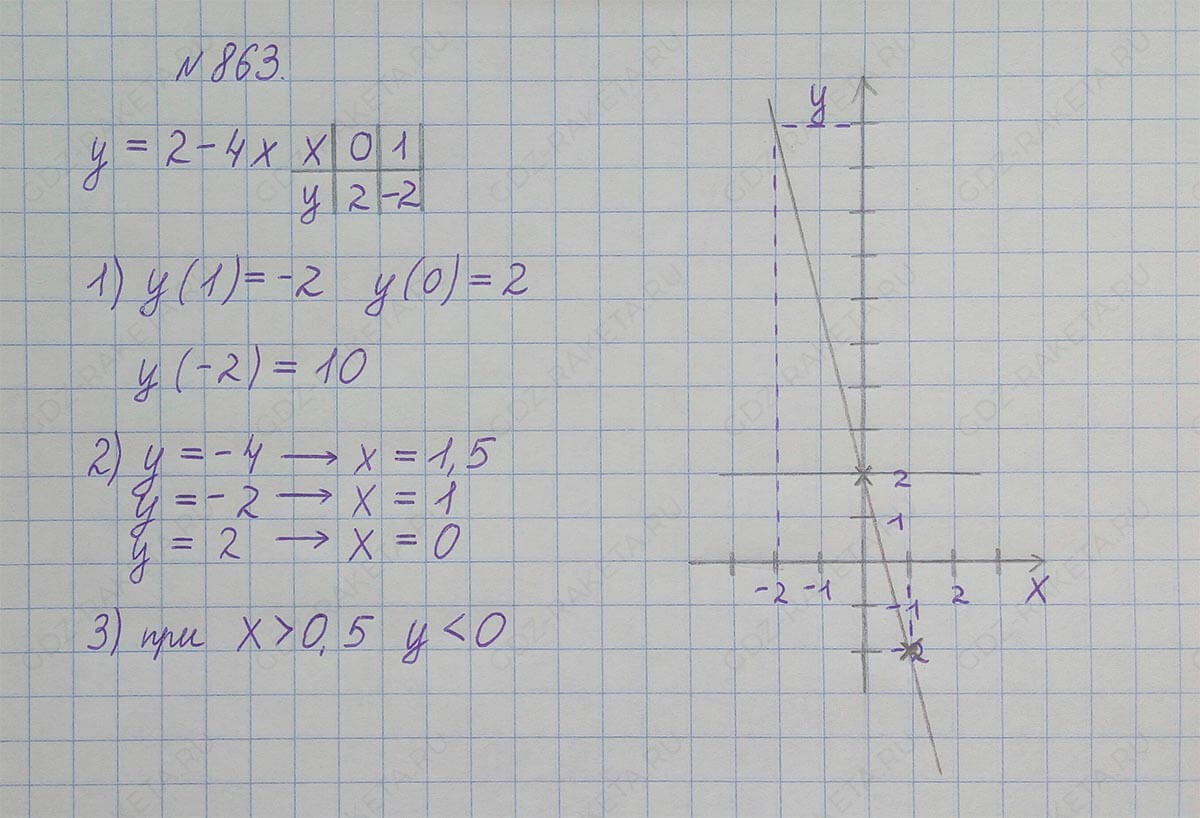 N 863.
y = 2 - 4x
x | 0 | 1
y | 2 | -2
1) y(1) = -2 y(0) = 2
y(-2) = 10
2) y = -4 → x = 1,5
y = -2 → x = 1
y = 2 → x = 0
3) при x > 0,5 y < 0
y
2
1
-2 -1 2 x
-1
-2
GDZ-RAKETA.RU